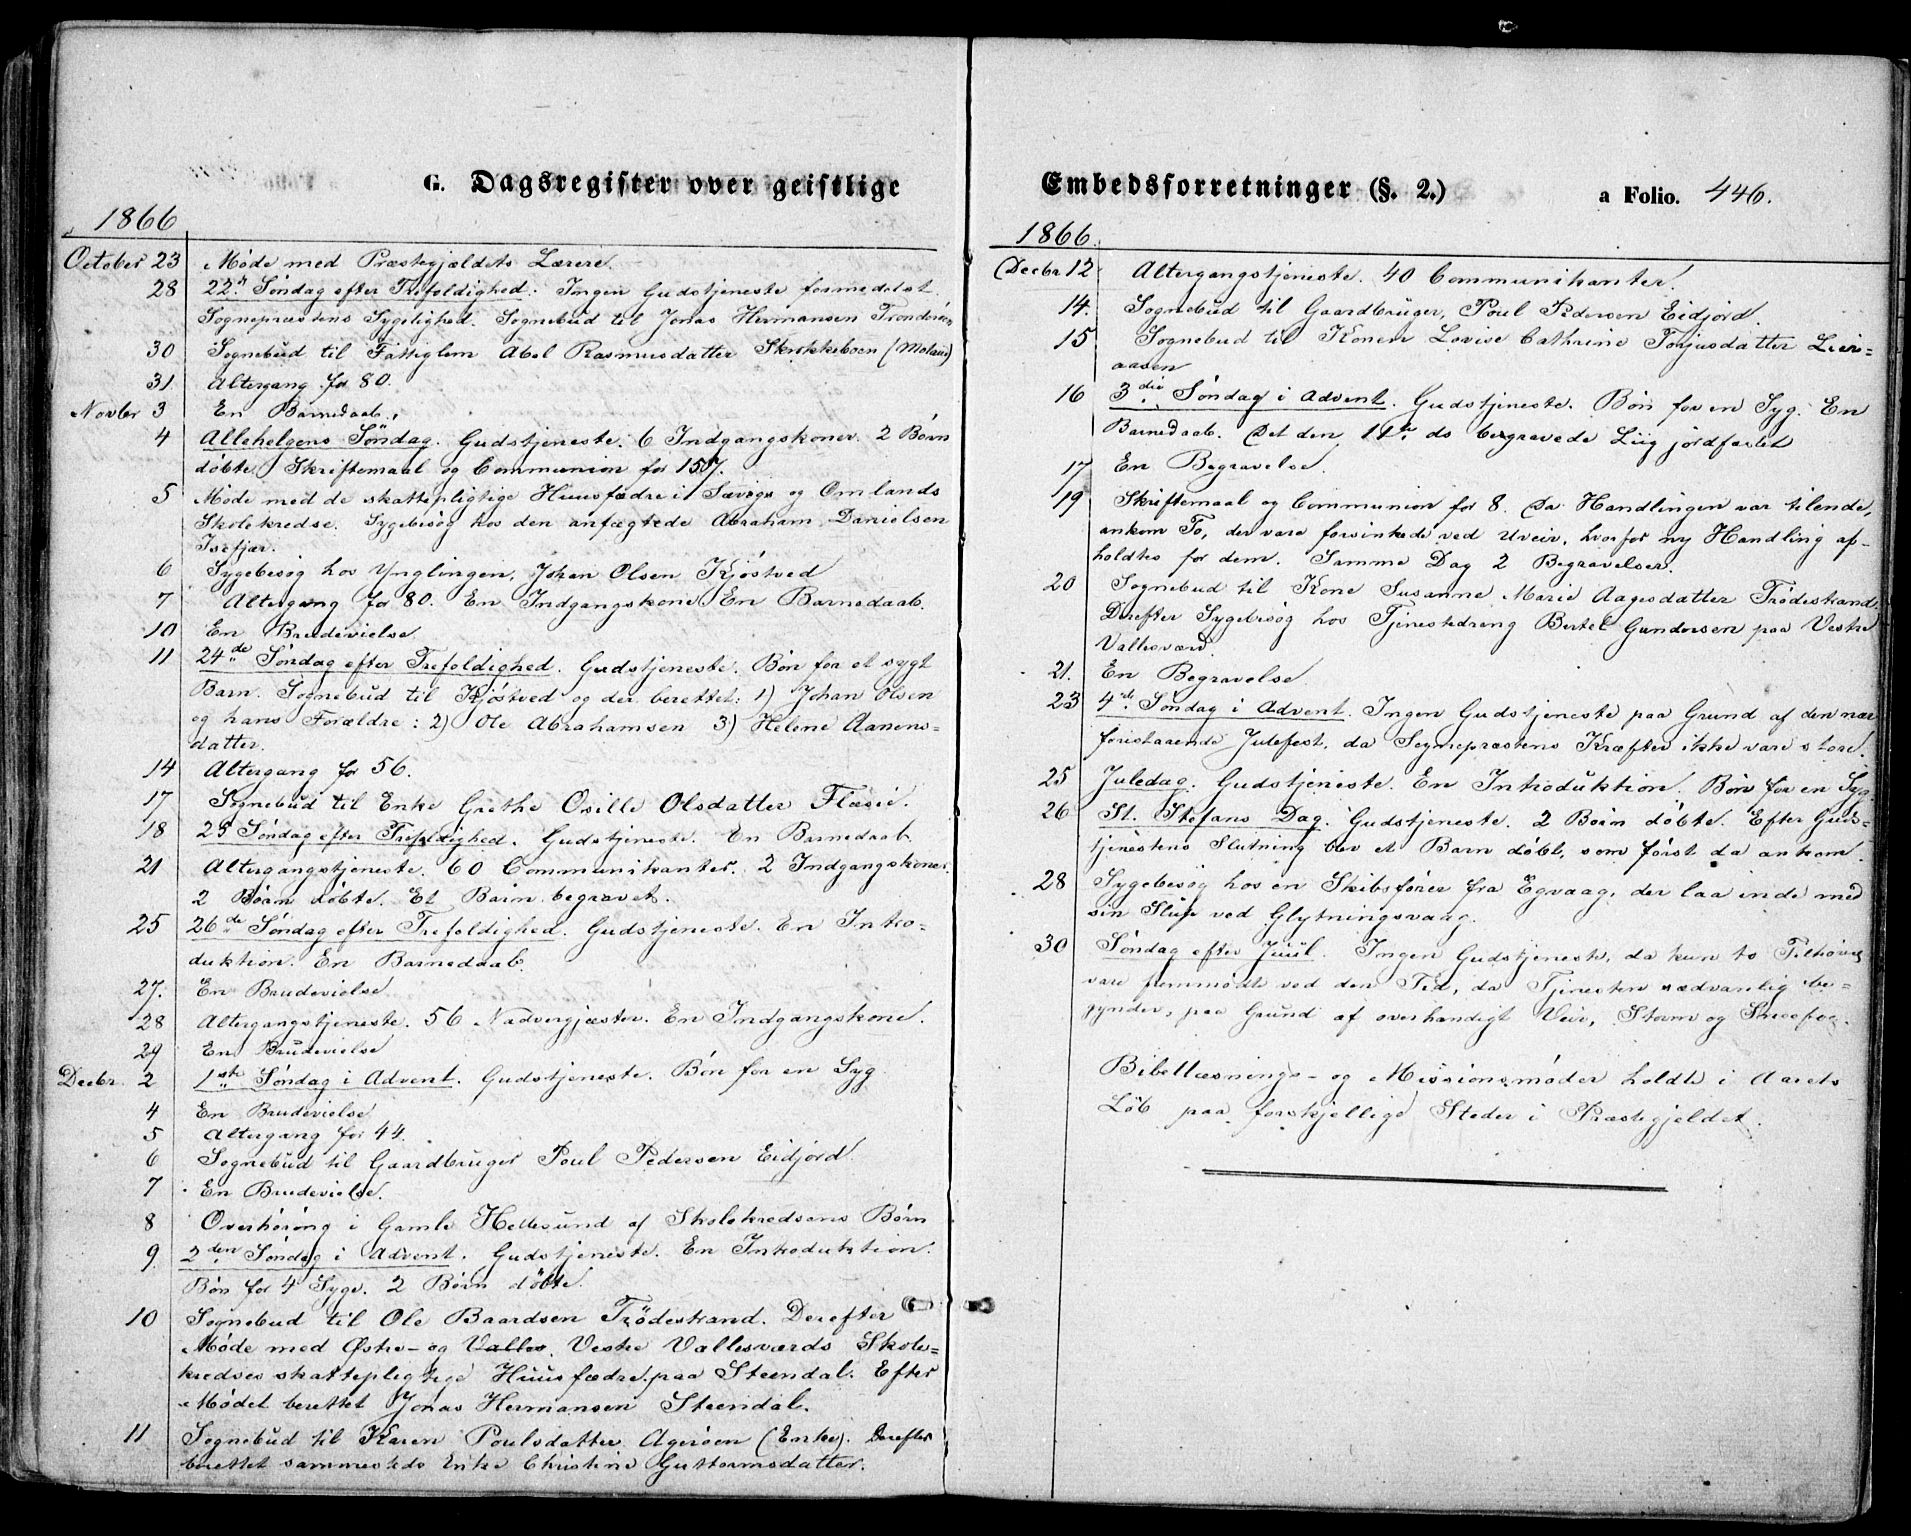 G. Dagsregister over geistlige
1866
October 23 Møde med Præstegjældets Lærere.
28 22de Søndag efter Trefoldighed. Ingen Gudstjeneste formedelst
Sognepræstens Sygelighed. Sognebud til Jonas Hermansen
30 Sognebud til Fattiglem Abel Rasmusdatter
31 Altergang for 80.
Novbr 3 En Barnedaab.
4 Allehelgens Søndag. Gudstjeneste. 6 Indgangskoner. 2 Børn
døbte. Skriftemaal og Communion for 157.
5 Møde med de skattepligtige Huusfædre i Sævigs og Omlands
Skolekredse. Sygebesøg hos den anfægtede Abraham Danielsen
Isefjær.
6 Sygebesøg hos Ynglingen, Johan Olsen Kjøstved
7 Altergang for 80. En Indgangskone. En Barnedaab.
10 En Brudevielse
11 24de Søndag efter Trefoldighed. Gudstjeneste. Bøn for et sygt
Barn. Sognebud til Kjøstved og der berettet: 1) Johan Olsen
og hans Forældre: 2) Ole Abrahamsen 3) Helene Aanens-
datter.
14 Altergang for 56.
17 Sognebud til Enke Grethe Osille Olsdatter
18 25 Søndag efter Trefoldighed. Gudstjeneste. En Barnedaab
21 Altergangstjeneste. 60 Communikanter. 2 Indgangskoner.
2 Børn døbte. Et Barn begravet.
25 26de Søndag efter Trefoldighed. Gudstjeneste. En Intro-
duktion. En Barnedaab.
27. En Brudevielse
28 Altergangstjeneste. 56 Nadvergjæster. En Indgangskone.
29 En Brudevielse
Decbr. 2 1ste Søndag i Advent. Gudstjeneste. Bøn for en Syg
4 En Brudevielse
5 Altergang for 44.
6 Sognebud til Gaardbruger Poul Pedersen Eidjord.
7 En Brudevielse.
8 Overhøring i Gamle Hellesund af Skolekredsens Børn
9 2den Søndag i Advent. Gudstjeneste. En Introduktion.
Bøn for 4 Syge. 2 Børn døbte.
10 Sognebud til Ole Baardsen Trødestrand. Derefter
Møde med Østre- og Valles. Vestre Vallesværds Skole-
kredses skattepligtige Huusfædre paa Steendal. Efter
Mødet berettet Jonas Hermansen Steendal.
11 Sognebud til Karen Poulsdatter Agerøen (Enke). Derefter
berettet sammesteds Enke Christine Guttormsdatter.
Embedsforretninger (§. 2.) a Folio. 446.
1866.
Decbr 12 Altergangstjeneste. 40 Communikanter.
14. Sognebud til Gaardbruger, Poul Pedersen Eidjord.
15 Sognebud til Konen Lovise Cathrine Torjusdatter Leer-
aasen
16 3die Søndag i Advent. Gudstjeneste. Bøn for en Syg. En
Barnedaab. Det den 11te ds begravede Liig jordfæstet
17 En Begravelse.
19 Skriftemaal og Communion for 8. Da Handlingen var tilende,
ankom To, der vare forsinkede ved Uveir, hvorfor ny Handling af-
holdtes for dem. Samme Dag 2 Begravelser.
20 Sognebud til Kone Susanne Marie Aagesdatter Trødestrand.
Derefter Sygebesøg hos Tjenestedreng Bertel Gundersen paa Vestre
Vallesværd.
21. En Begravelse
23 4de Søndag i Advent. Ingen Gudstjeneste paa Grund af den nær
forestaaende Julefest, da Sognepræstens Kræfter ikke vare store.
25 Juledag. Gudstjeneste. En Introduktion. Bøn for en Syg.
26 St. Stefans Dag. Gudstjeneste. 2 Børn døbte. Efter Guds-
tjenestens Slutning blev et Barn døbt, som først da ankom.
28 Sygebesøg hos en Skibsfører fra Egvaag, der laa inde med
sin Slup ved Glytningsvaag.
30 Søndag efter Juul. Ingen Gudstjeneste, da kun to Tilhørere
vare fremmødte ved den Tid, da Tjenesten sædvanlig be-
gynder, paa Grund af overhændigt Veir, Storm og Sneefog.
Bibellæsnings- og Missionsmøder holdte i Aarets
Løb paa forskjellige Steder i Præstegjeldet.